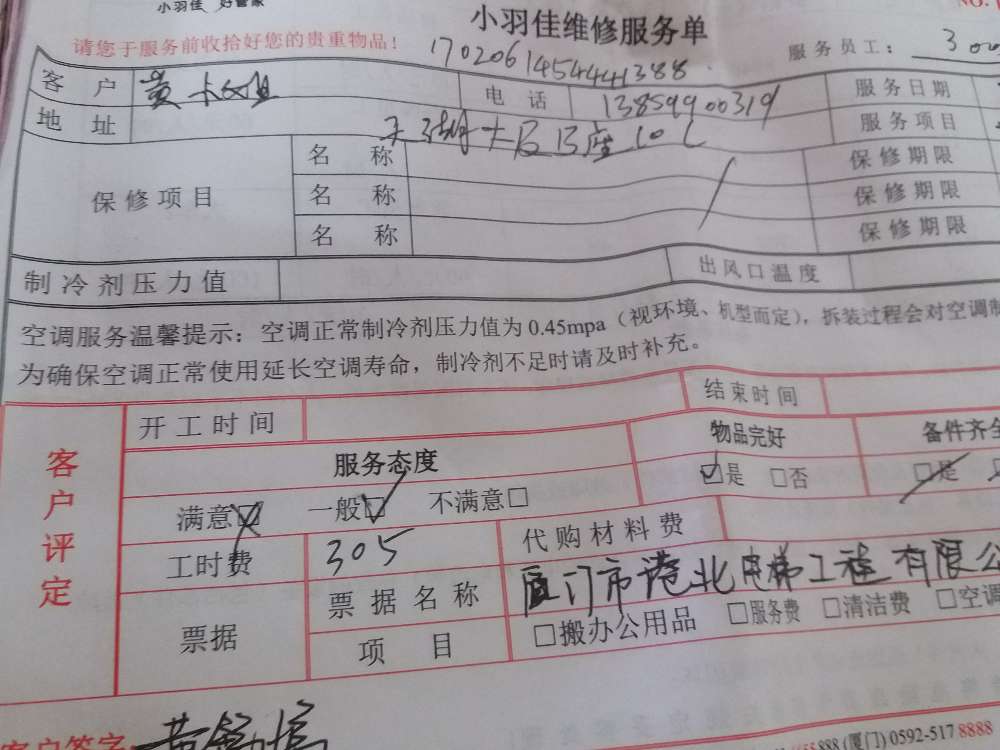 小羽佳 好管家
小羽佳维修服务单
NO.
请您于服务前收拾好您的贵重物品！
1702061454441388
服务员工：
客户 黄 电话 13859900319 服务日期
地址 B座10L 服务项目
保修项目 名称 保修期限
名称 保修期限
名称 保修期限
制冷剂压力值 出风口温度
空调服务温馨提示：空调正常制冷剂压力值为 0.45mpa（视环境、机型而定），拆装过程会对空调制
为确保空调正常使用延长空调寿命，制冷剂不足时请及时补充。
客户评定
开工时间 结束时间
服务态度 物品完好 备件齐全
满意□ 一般□ 不满意□ □是 □否 □是
工时费 305 代购材料费
票据 票据名称 厦门市港北电梯工程有限公
项目 □搬办公用品 □服务费 □清洁费 □空调
客户签字：
888 (厦门) 0592-517 8888